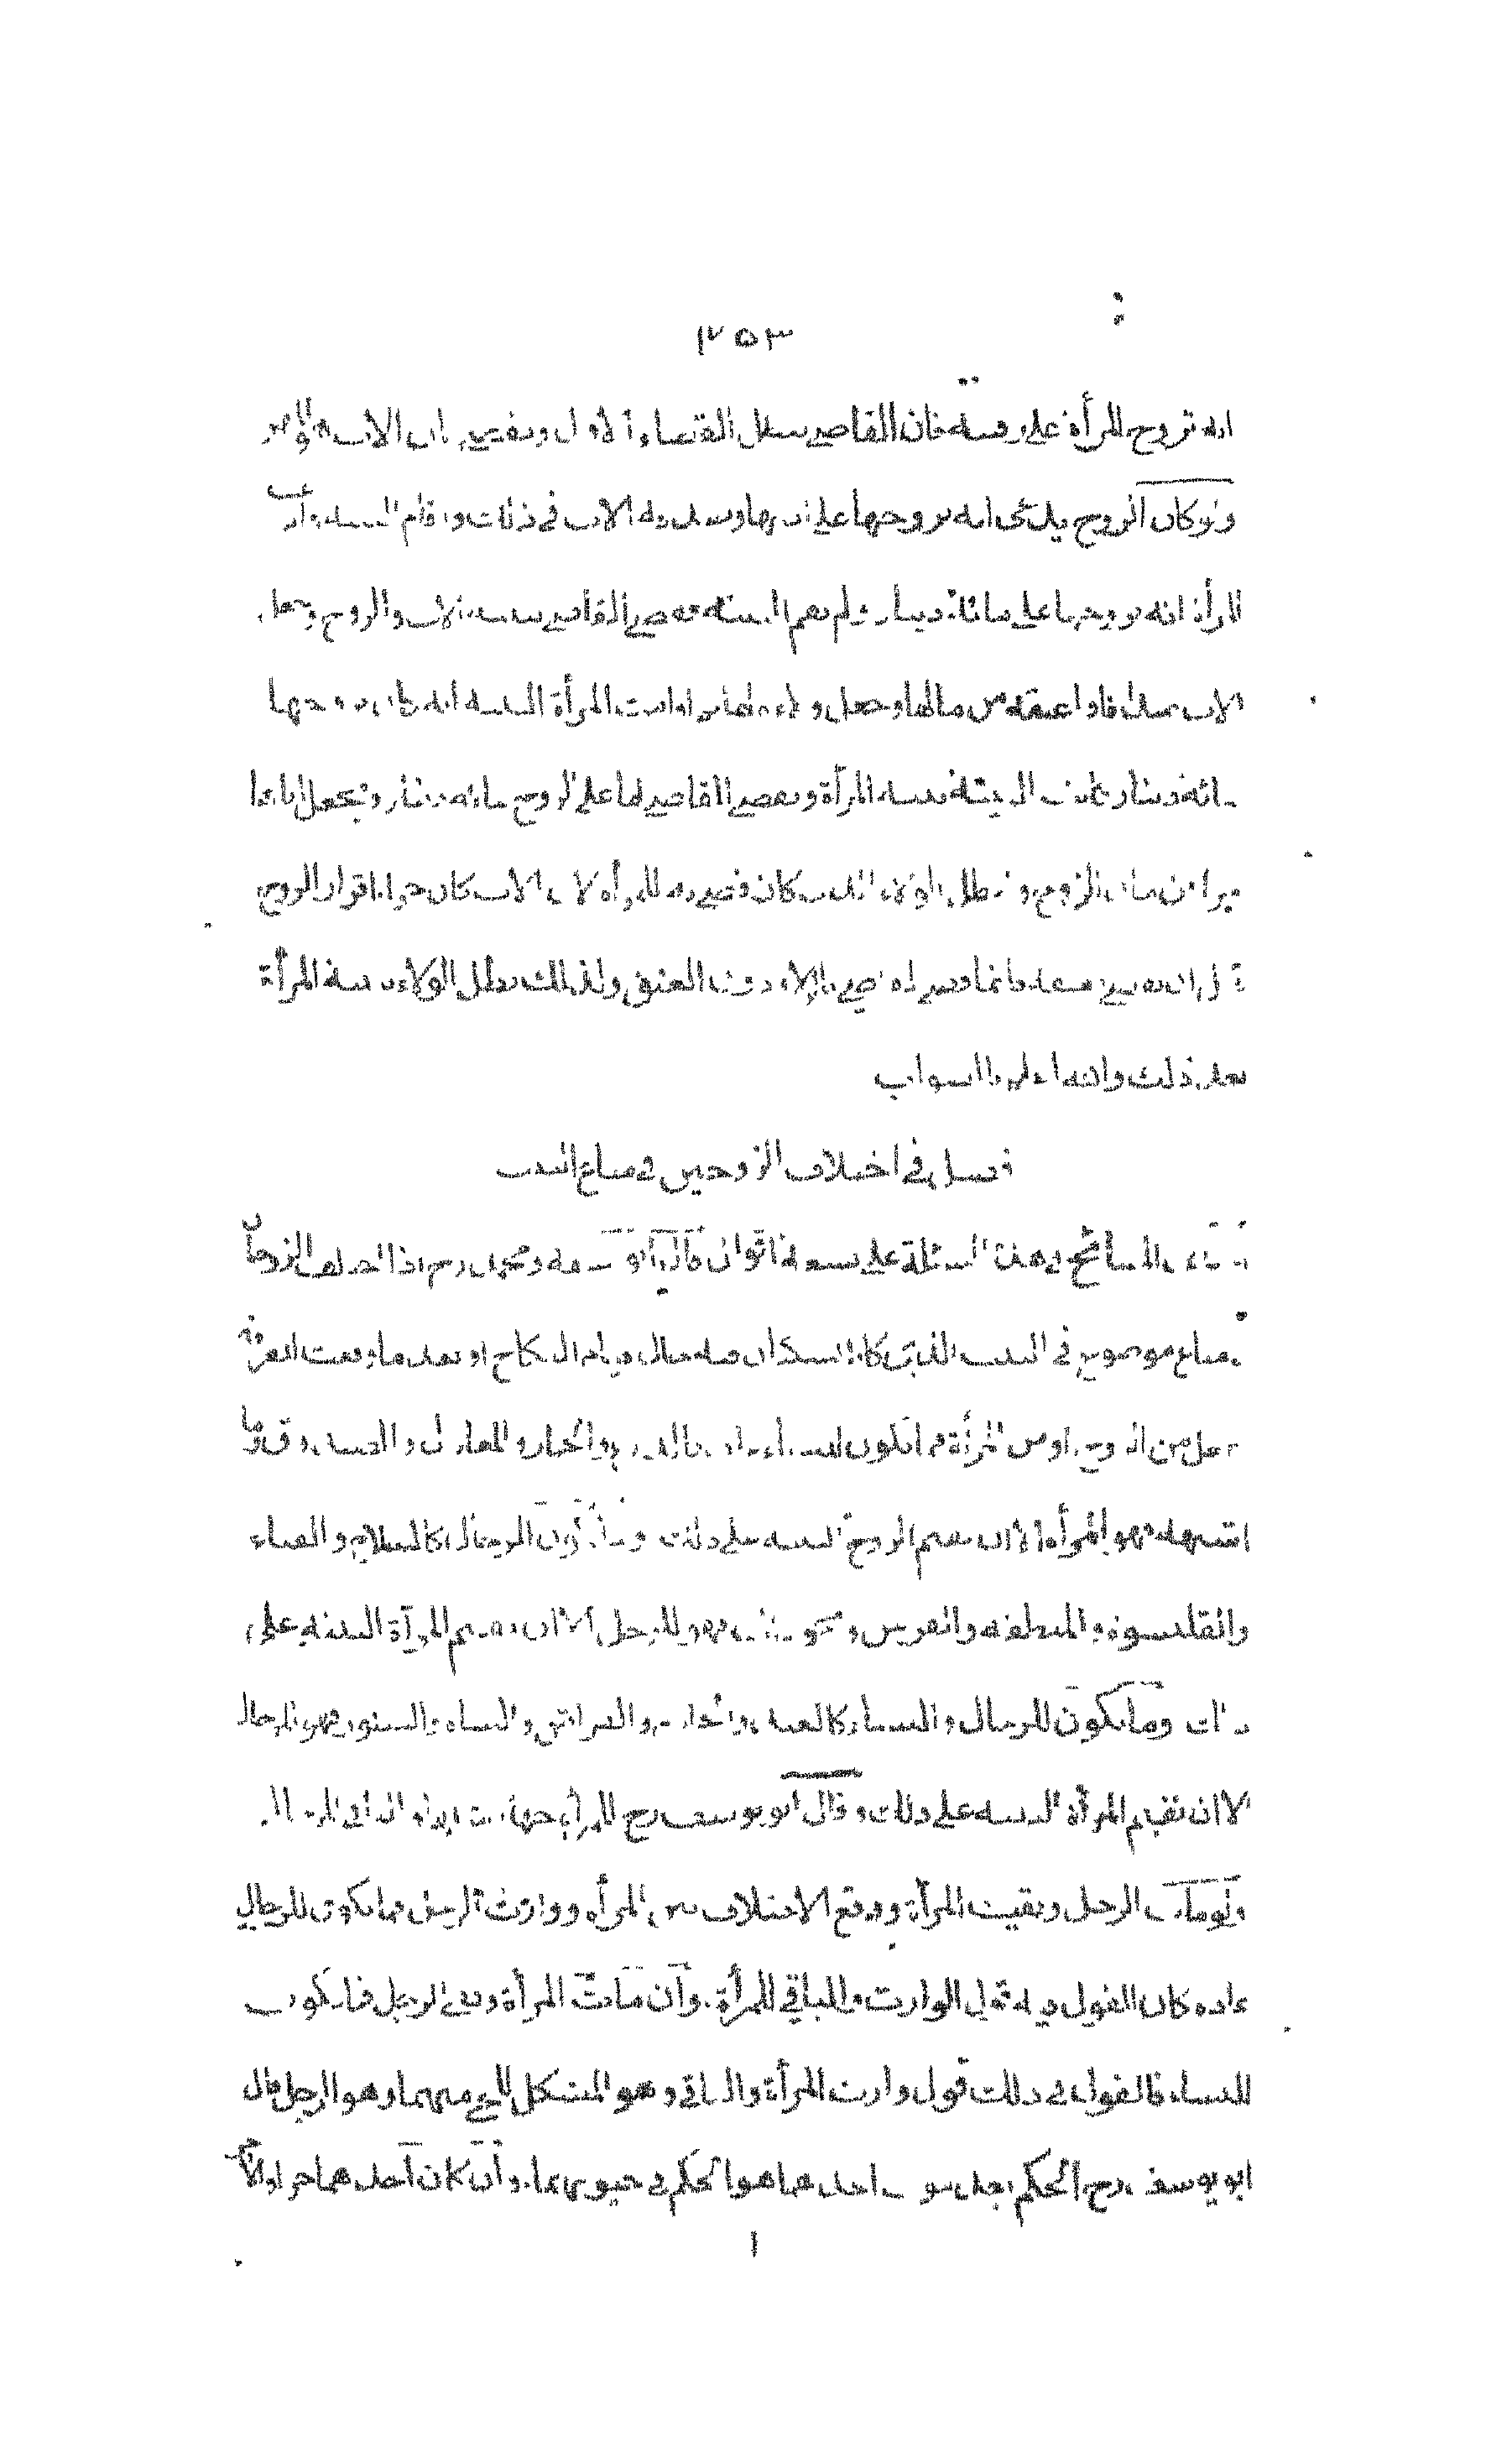 ٣٥٣
انه تزوج المرأة على رقبته فان القاضي يبطل القضاء الاول ويقضي بان الاب
ولو كان الزوج يدعي انه تزوجها على ابيها ويصدقه الاب في ذلك واقام البينة وادعت
المرأة انه تزوجها على مائة دينار ولم تقم البينة فقضى القاضي ببينة الاب والزوج وجعل
الاب صداقا واعتقه من مالها وجعل ولاءه لها ثم اقامت المرأة البينة انه كان تزوجها
مائة دينار كانت البينة بينة المرأة ويقضي القاضي لها على الزوج بمائة دينار ويجعل اباها
حرا من مال الزوج ويبطل الولاء الذي كان قضى به للمرأة لان الاب كان حرا باقرار الزوج
دون العتق ولذلك يبطل الولاء ببينة المرأة
بعد ذلك والله اعلم بالصواب
فصل في اختلاف الزوجين في متاع البيت
المشائخ في هذه المسئلة على سبعة اقوال قال ابو حنيفة ومحمد رح اذا اختلف الزوجان
متاع موضوع في البيت الذي كانا يسكنان فيه حال قيام النكاح او بعد ما وقعت الفرقة
بفعل من الزوج او من المرأة فما يكون للنساء عادة كالدرع والخمار والمغازل والصندوق وما
اشبهه فهو للمرأة الا ان يقيم الزوج البينة على ذلك وما يكون للرجال كالسلاح والقباء
والقلنسوة والمنطقة والفرس ونحو ذلك فهو للرجل الا ان تقيم المرأة البينة على
ذلك وما يكون للرجال والنساء كالعبد والخادم والفراش والشاة والستور فهو للرجل
الا ان تقيم المرأة البينة على ذلك وقال ابو يوسف رح للمرأة جهاز
ولو مات الرجل وبقيت المرأة ووقع الاختلاف بين المرأة ووارث الزوج فما يكون للرجال
عادة كان القول فيه قول الوارث والباقي للمرأة. وان ماتت المرأة وبقي الرجل فما يكون
للنساء فالقول في ذلك قول وارث المرأة والباقي وهو المشكل للحي منهما وهو الرجل قال
ابو يوسف رح الحكم بعد موت احدهما هو الحكم في حيوتهما. وان كان احدهما حرا والآخر